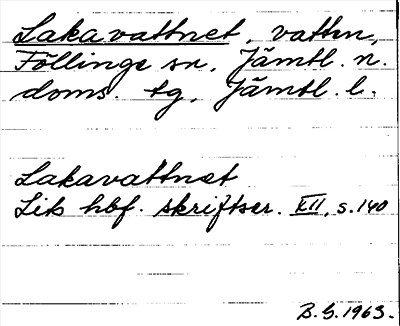 Lakavattnet, vatten,
Föllinge sn, Jämtl. n.
doms. tg, Jämtl. l.
Lakavattnet
Lits hbf. skriftser. XII, s. 140
B.G. 1963.